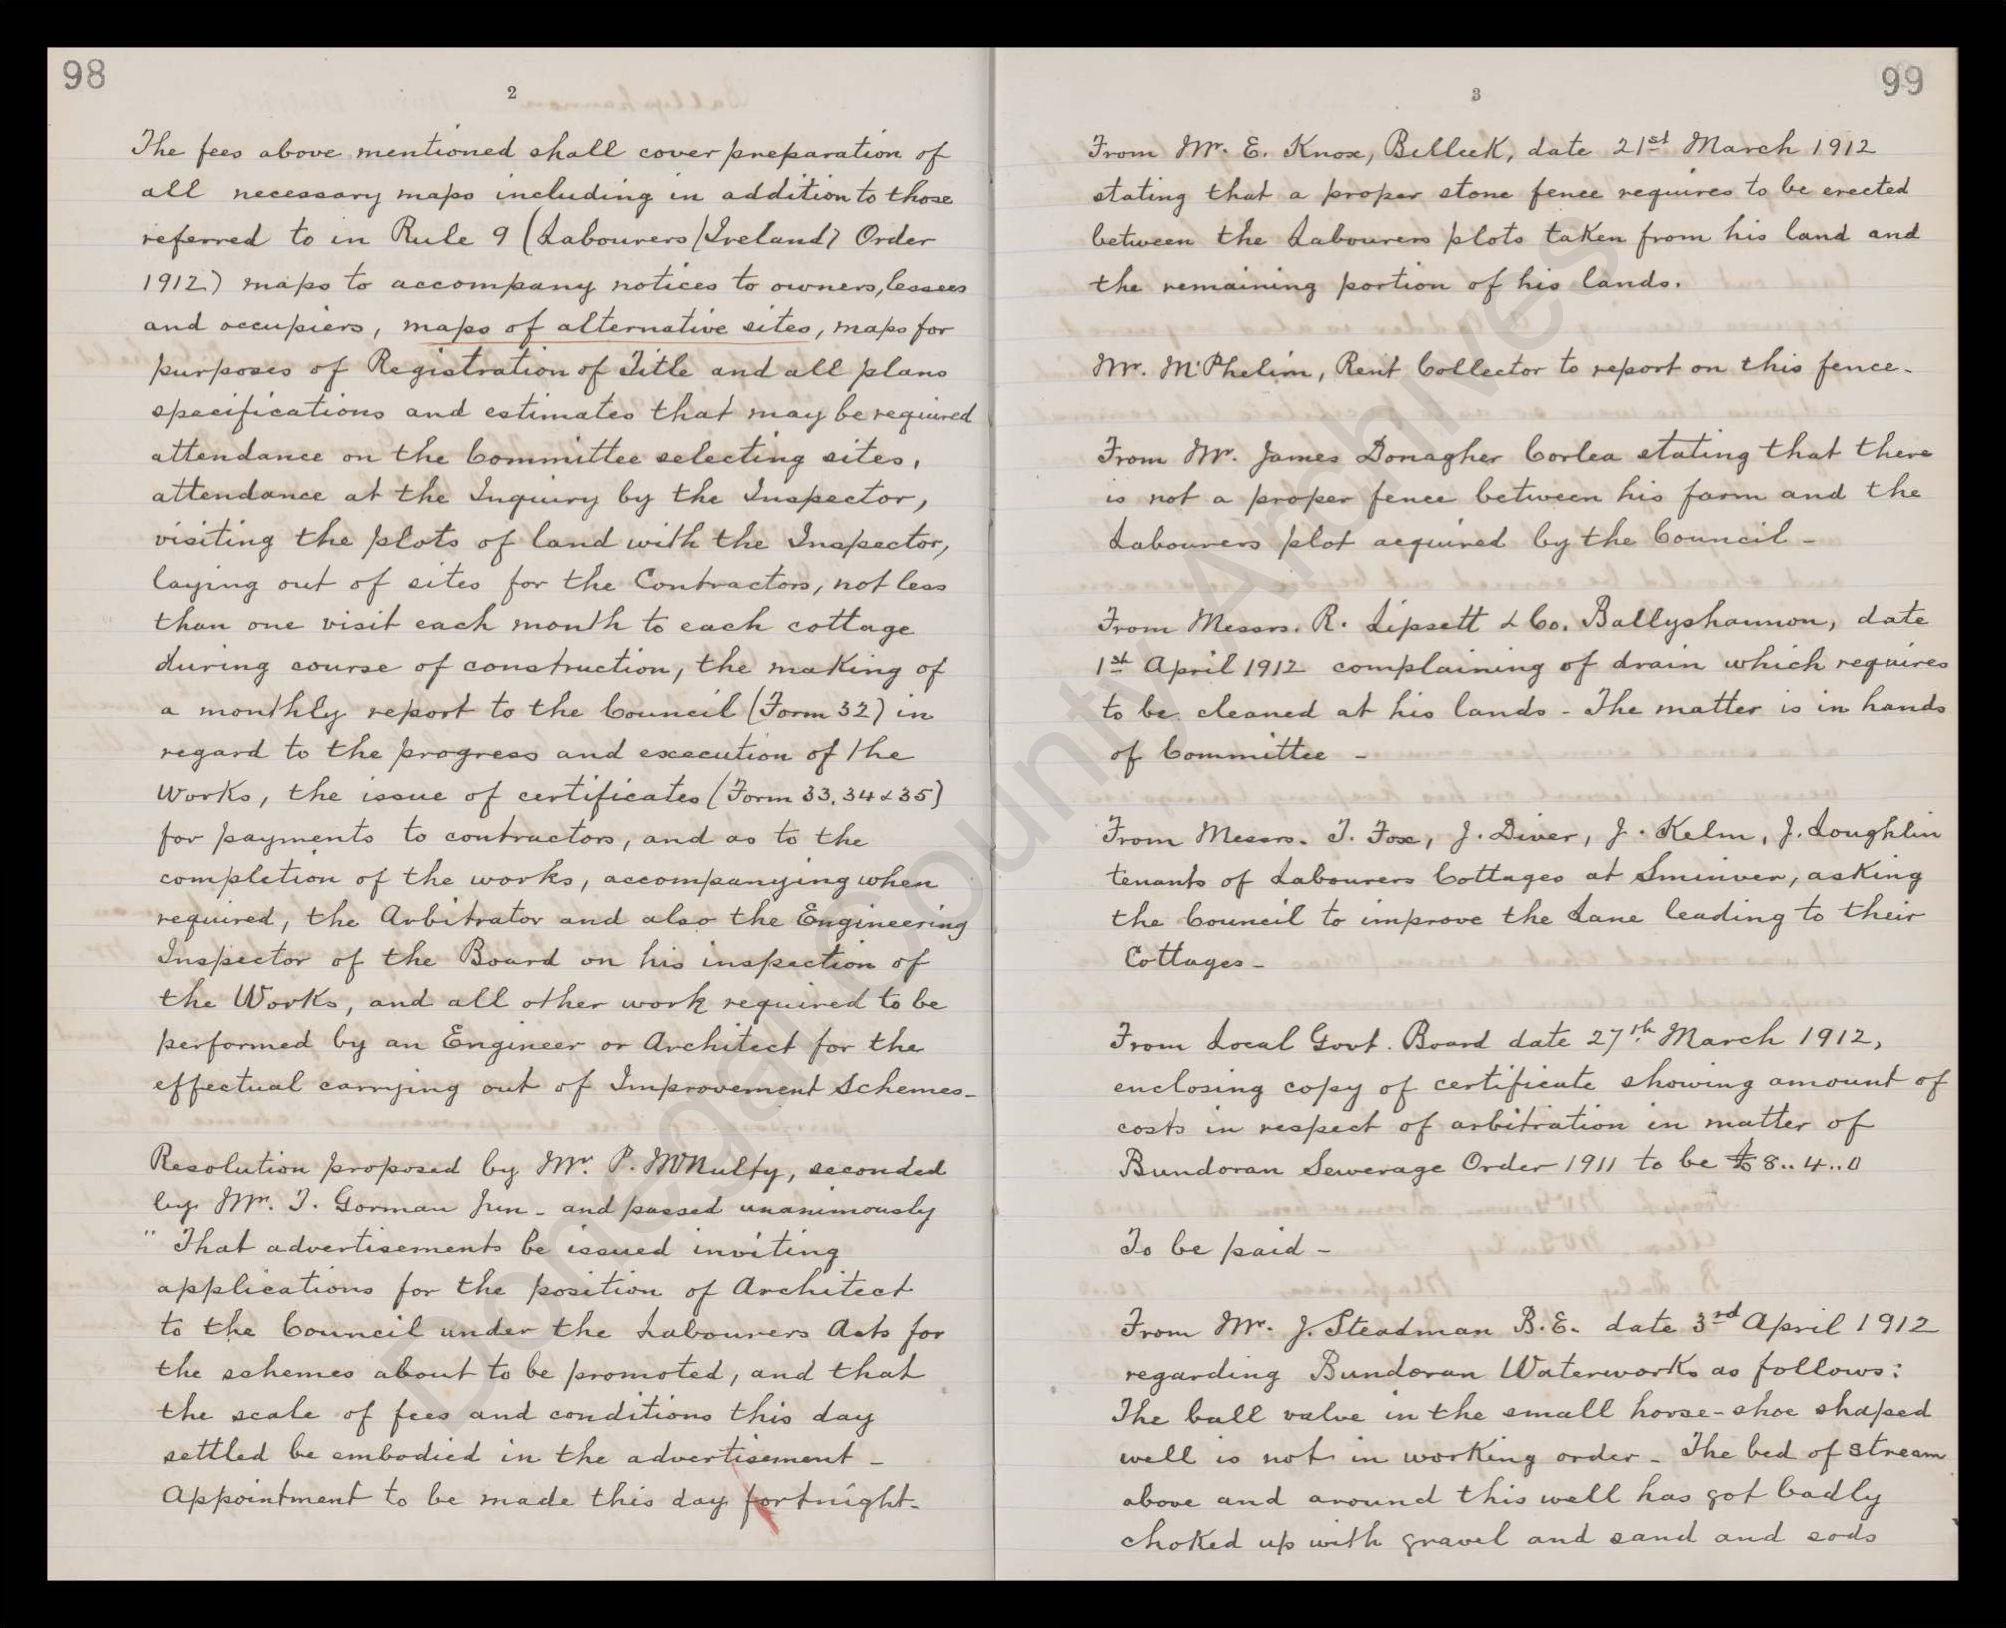 98
2
The fees above mentioned shall cover preparation of
all necessary maps including in addition to those
referred to in Rule 9 (Labourers (Ireland) Order
1912) maps to accompany notices to owners, lessees
and occupiers, maps of alternative sites, maps for
purposes of Registration of Title and all plans
specifications and estimates that may be required
attendance on the Committee selecting sites,
attendance at the Inquiry by the Inspector,
visiting the plots of land with the Inspector,
laying out of sites for the Contractors, not less
than one visit each month to each cottage
during course of construction, the making of
a monthly report to the Council (Form 32) in
regard to the progress and execution of the
Works, the issue of certificates (Form 33, 34 & 35)
for payments to contractors, and as to the
completion of the works, accompanying when
required, the Arbitrator and also the Engineering
Inspector of the Board on his inspection of
the Works, and all other work required to be
performed by an Engineer or Architect for the
effectual carrying out of Improvement Schemes -
Resolution proposed by Mr. P. McNulty, seconded
by Mr. T. Gorman Jun - and passed unanimously
" That advertisements be issued inviting
applications for the position of Architect
to the Council under the Labourers Acts for
the schemes about to be promoted, and that
the scale of fees and conditions this day
settled be embodied in the advertisement -
Appointment to be made this day fortnight -
99
3
From Mr. E. Knox, Belleek, date 21st March 1912
stating that a proper stone fence requires to be erected
between the Labourers plots taken from his land and
the remaining portion of his lands.
Mr. McPhelim, Rent Collector to report on this fence -
From Mr. James Donagher Corlea stating that there
is not a proper fence between his farm and the
Labourers plot acquired by the Council -
From Messrs. R. Lipsett & Co. Ballyshannon, date
1st April 1912 complaining of drain which requires
to be cleaned at his lands - The matter is in hands
of Committee -
From Messrs. T. Fox, J. Diver, J. Kelm, J. Loughlin
tenants of Labourers Cottages at Sminver, asking
the Council to improve the Lane leading to their
Cottages -
From Local Govt. Board date 27th March 1912,
enclosing copy of certificate showing amount of
costs in respect of arbitration in matter of
Bundoran Sewerage Order 1911 to be £8..4..0
To be paid -
From Mr. J. Steadman B.E. date 3rd April 1912
regarding Bundoran Waterworks as follows:
The ball valve in the small horse-shoe shaped
well is not in working order - The bed of stream
above and around this well has got badly
choked up with gravel and sand and sods
Donegal County Archives